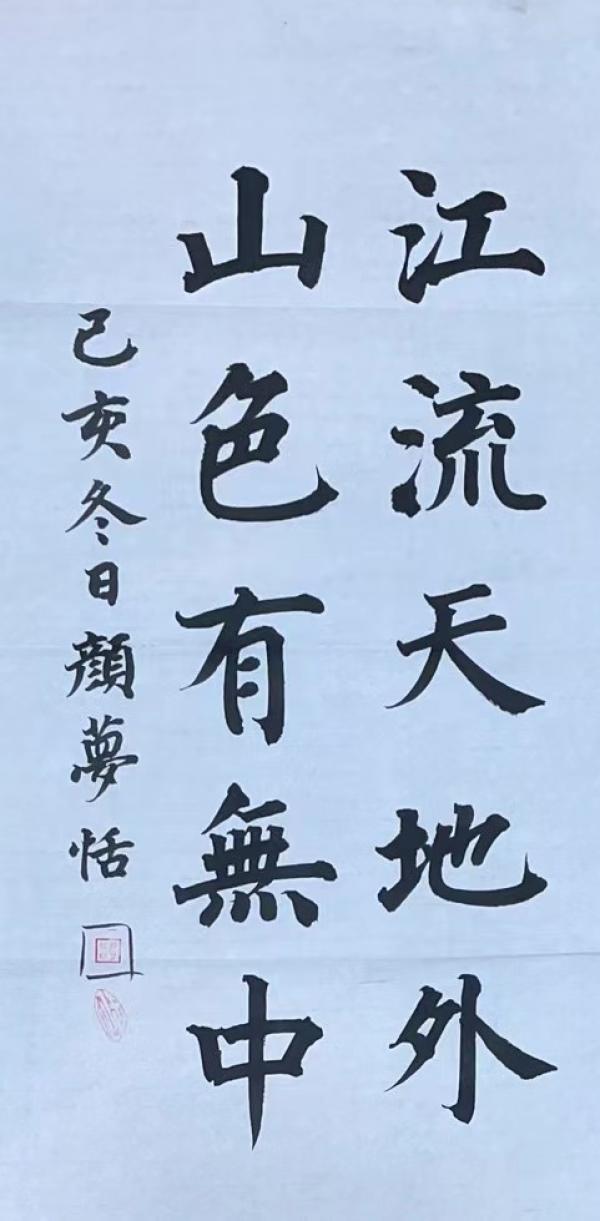 江流天地外
山色有無中
己亥冬日顔夢恬